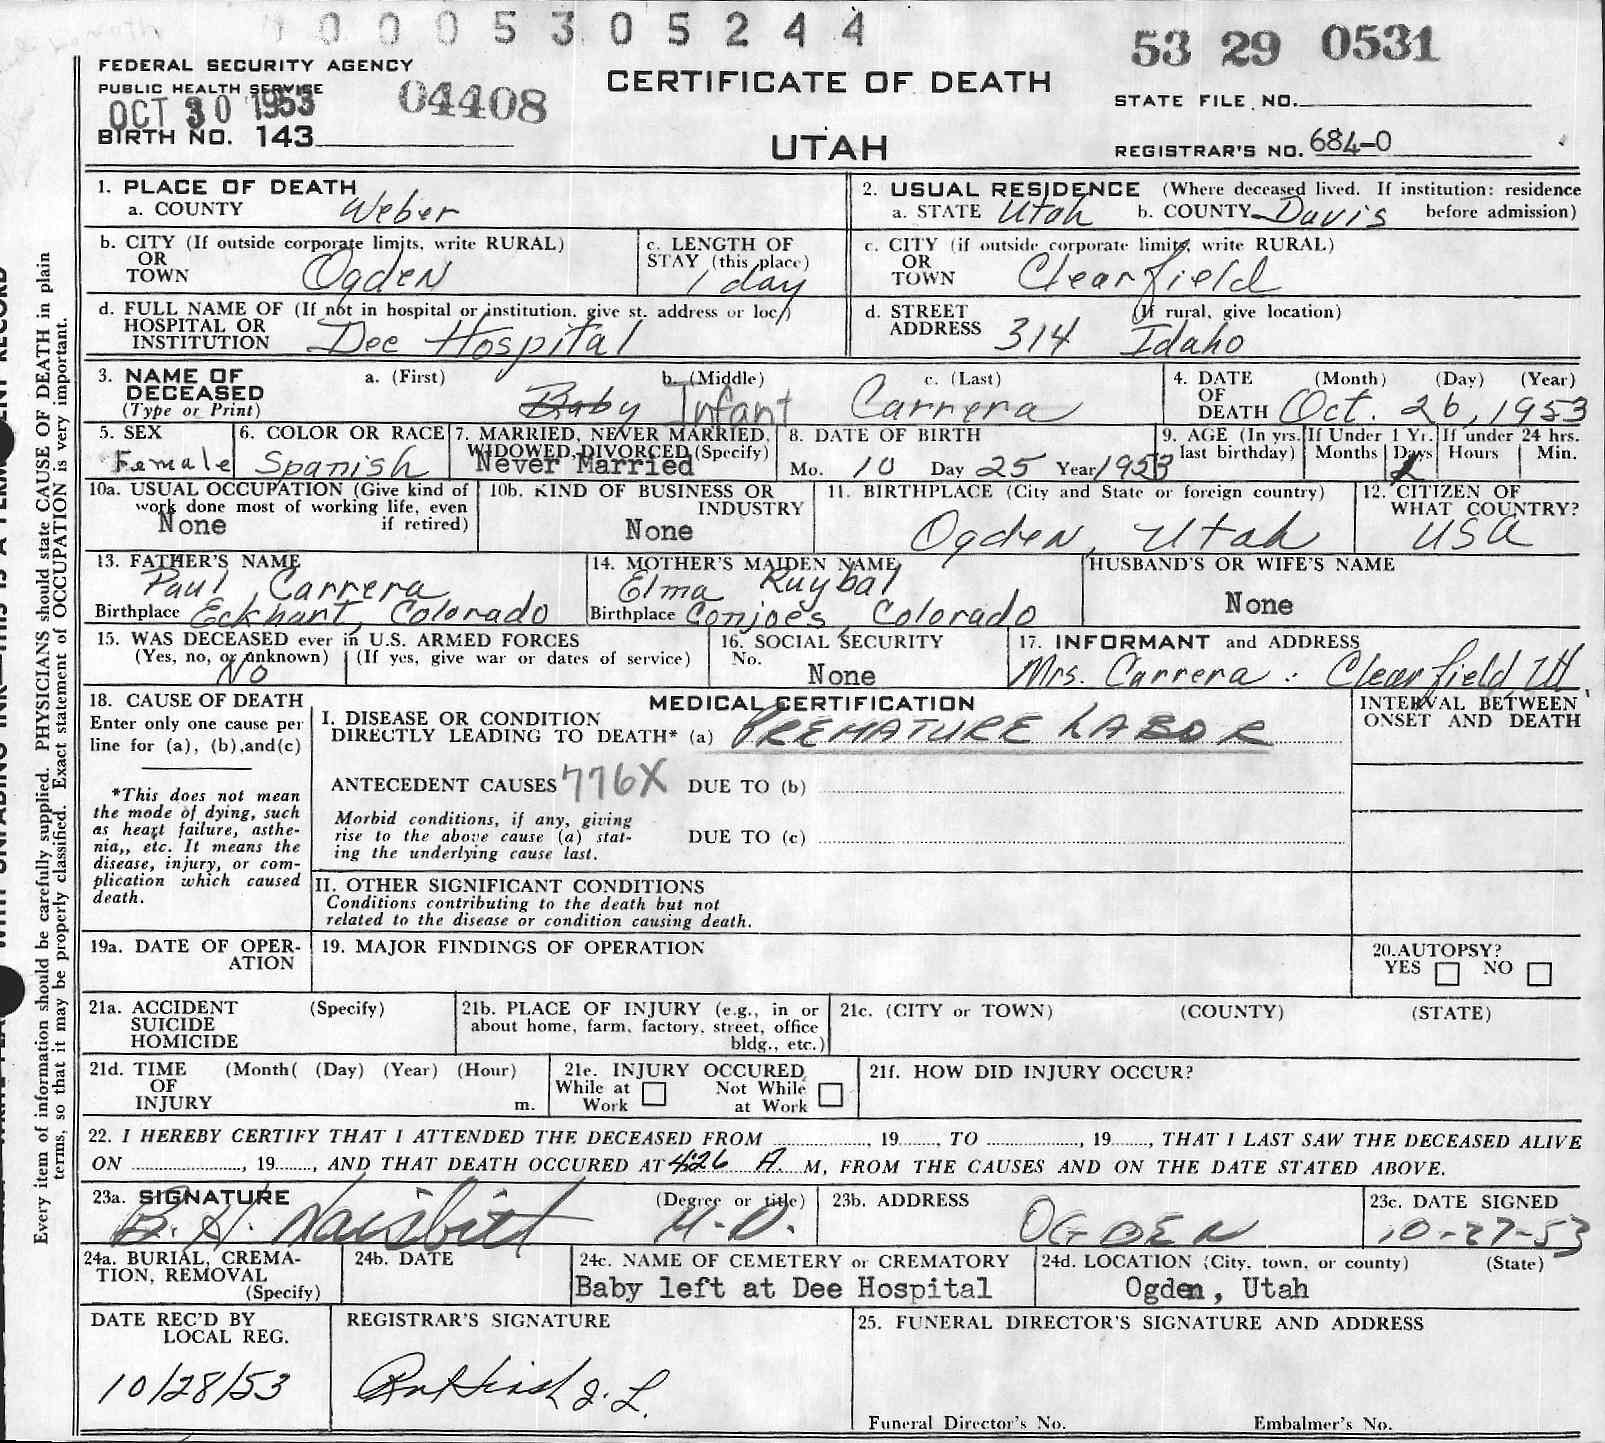 0 0 0 5 3 0 5 2 4 4
53 29 0531
FEDERAL SECURITY AGENCY
PUBLIC HEALTH SERVICE
OCT 30 1953
04408
CERTIFICATE OF DEATH
STATE FILE NO.
BIRTH NO. 143
UTAH
REGISTRAR'S NO. 684-0
1. PLACE OF DEATH
a. COUNTY Weber
2. USUAL RESIDENCE (Where deceased lived. If institution: residence
a. STATE Utah b. COUNTY Davis before admission)
b. CITY (If outside corporate limits, write RURAL)
OR
TOWN Ogden
c. LENGTH OF
STAY (this place)
1 day
c. CITY (if outside corporate limits, write RURAL)
OR
TOWN Clearfield
d. FULL NAME OF (If not in hospital or institution, give st. address or loc.)
HOSPITAL OR
INSTITUTION Dee Hospital
d. STREET (If rural, give location)
ADDRESS 314 Idaho
3. NAME OF a. (First) b. (Middle) c. (Last)
DECEASED
(Type or Print) Baby Infant Carrera
4. DATE (Month) (Day) (Year)
OF
DEATH Oct. 26, 1953
5. SEX
Female
6. COLOR OR RACE
Spanish
7. MARRIED, NEVER MARRIED,
WIDOWED, DIVORCED (Specify)
Never Married
8. DATE OF BIRTH
Mo. 10 Day 25 Year 1953
9. AGE (In yrs. last birthday)
If Under 1 Yr.
Months Days
If under 24 hrs.
Hours Min.
10a. USUAL OCCUPATION (Give kind of
work done most of working life, even
if retired)
None
10b. KIND OF BUSINESS OR
INDUSTRY
None
11. BIRTHPLACE (City and State or foreign country)
Ogden, Utah
12. CITIZEN OF
WHAT COUNTRY?
USA
13. FATHER'S NAME
Paul Carrera
Birthplace Eckhart, Colorado
14. MOTHER'S MAIDEN NAME
Elma Ruybal
Birthplace Conjoes, Colorado
HUSBAND'S OR WIFE'S NAME
None
15. WAS DECEASED ever in U.S. ARMED FORCES
(Yes, no, or unknown) (If yes, give war or dates of service)
No
16. SOCIAL SECURITY
No.
None
17. INFORMANT and ADDRESS
Mrs. Carrera : Clearfield Ut
18. CAUSE OF DEATH
Enter only one cause per
line for (a), (b), and (c)
*This does not mean
the mode of dying, such
as heart failure, asthe-
nia,, etc. It means the
disease, injury, or com-
plication which caused
death.
MEDICAL CERTIFICATION
I. DISEASE OR CONDITION
DIRECTLY LEADING TO DEATH* (a) PREMATURE LABOR
INTERVAL BETWEEN
ONSET AND DEATH
ANTECEDENT CAUSES 776X DUE TO (b)
Morbid conditions, if any, giving
rise to the above cause (a) stat-
ing the underlying cause last.
DUE TO (c)
II. OTHER SIGNIFICANT CONDITIONS
Conditions contributing to the death but not
related to the disease or condition causing death.
19a. DATE OF OPER-
ATION
19. MAJOR FINDINGS OF OPERATION
20. AUTOPSY?
YES NO
21a. ACCIDENT (Specify)
SUICIDE
HOMICIDE
21b. PLACE OF INJURY (e.g., in or
about home, farm, factory, street, office
bldg., etc.)
21c. (CITY or TOWN) (COUNTY) (STATE)
21d. TIME (Month( (Day) (Year) (Hour)
OF
INJURY m.
21e. INJURY OCCURED
While at Work
Not While at Work
21f. HOW DID INJURY OCCUR?
22. I HEREBY CERTIFY THAT I ATTENDED THE DECEASED FROM ............, 19......, TO ............, 19......, THAT I LAST SAW THE DECEASED ALIVE
ON ............, 19......, AND THAT DEATH OCCURED AT 4:26 A. M, FROM THE CAUSES AND ON THE DATE STATED ABOVE.
23a. SIGNATURE (Degree or title)
B. H. Naisbitt M.D.
23b. ADDRESS
OGDEN
23c. DATE SIGNED
10-27-53
24a. BURIAL, CREMA-
TION, REMOVAL
(Specify)
24b. DATE
24c. NAME OF CEMETERY or CREMATORY
Baby left at Dee Hospital
24d. LOCATION (City, town, or county) (State)
Ogden, Utah
DATE REC'D BY
LOCAL REG.
10/28/53
REGISTRAR'S SIGNATURE
25. FUNERAL DIRECTOR'S SIGNATURE AND ADDRESS
Funeral Director's No. Embalmer's No.
Every item of information should be carefully supplied. PHYSICIANS should state CAUSE OF DEATH in plain
terms, so that it may be properly classified. Exact statement of OCCUPATION is very important.